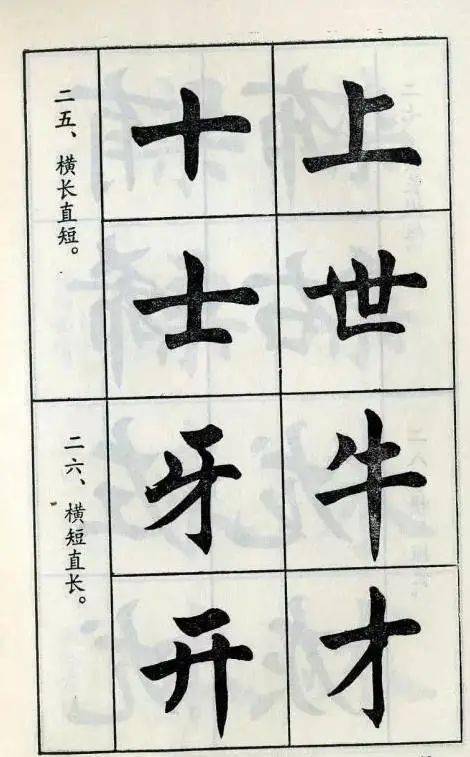 二五、横长直短。
十士
上世
二六、横短直长。
牙开
牛才